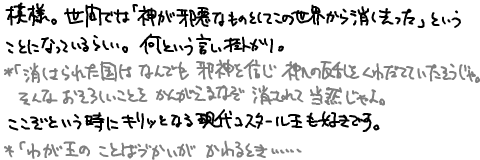 模様。世間では「神が邪悪なものとしてこの世界から消し去った」という
ことになっているらしい。何という言い掛かり。
*「消はられた国は なんでも 邪神を信じ 神への反乱を くわだてていたそうじゃ。
そんな おそろしいことを かんがえるなぞ 消されて 当然じゃよ。
ここぞという時にキリッとなる現代コスタール王も好きです。
*「わが王の ことばづかいが かわるとき……